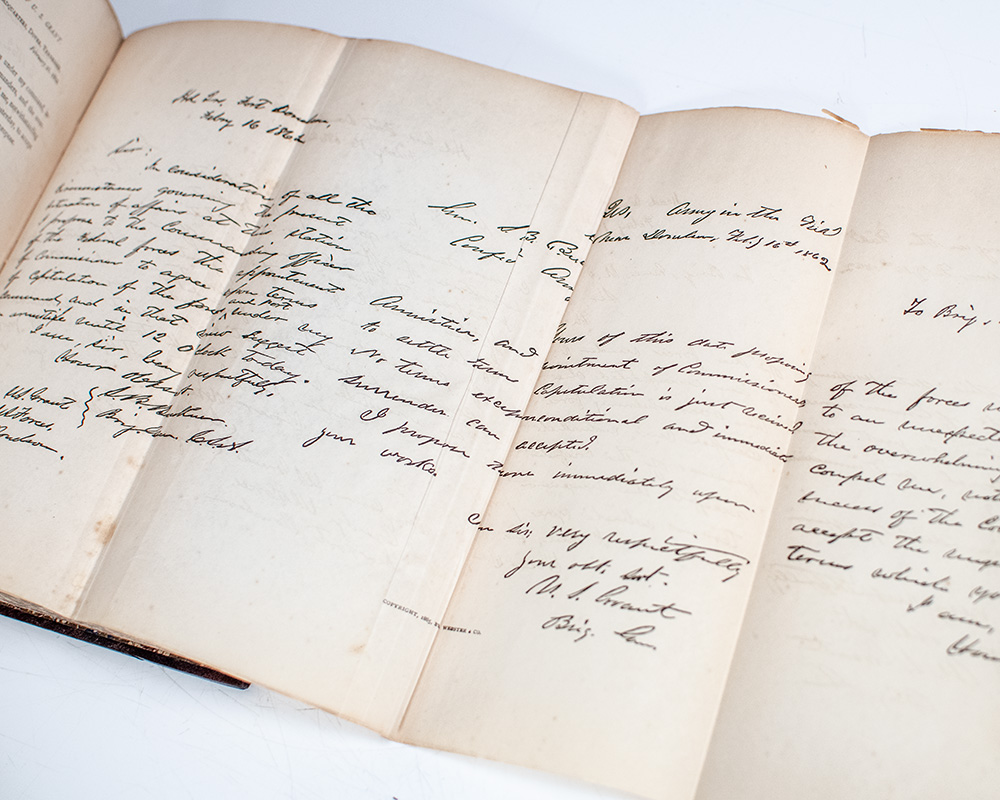 U. S. GRANT
HEADQUARTERS, DOVER, TENNESSEE,
February 16, 1862.
under my command,
Hd Qrs, Fort Donelson,
Feby 16 1862
Sir:
In consideration of all the
circumstances governing the present
situation of affairs at this station
I propose to the Commanding officer
of the Federal forces the appointment
of Commissioners to agree upon terms
of Capitulation of the forces and post under my
command, and in that view suggest
an armistice until 12 o'clock today.
I am, sir, very respectfully,
Your obdt. st.
S.B. Buckner
Brig. Gen. C.S.A.
U.S. Grant
U.S. Forces,
Donelson.
Qrs, Army in the Field
near Donelson, Feb.y 16th 1862
Gen. S.B. Buc
Confed. Army
Yours of this date proposing
Armistice, and ointment of Commissioners
to settle terms Capitulation is just received.
No terms except unconditional and immediate
surrender can accepted.
I propose move immediately upon
your works.
am sir, very respectfully
your obt. svt.
U. S. Grant
Brig. Gen.
COPYRIGHT, 1885, BY WEBSTER & CO.
To Brig.
of the forces
to an unexpect
the overwhelming
compel me, not
success of the Co
accept the ung
terms which yo
I am,
You